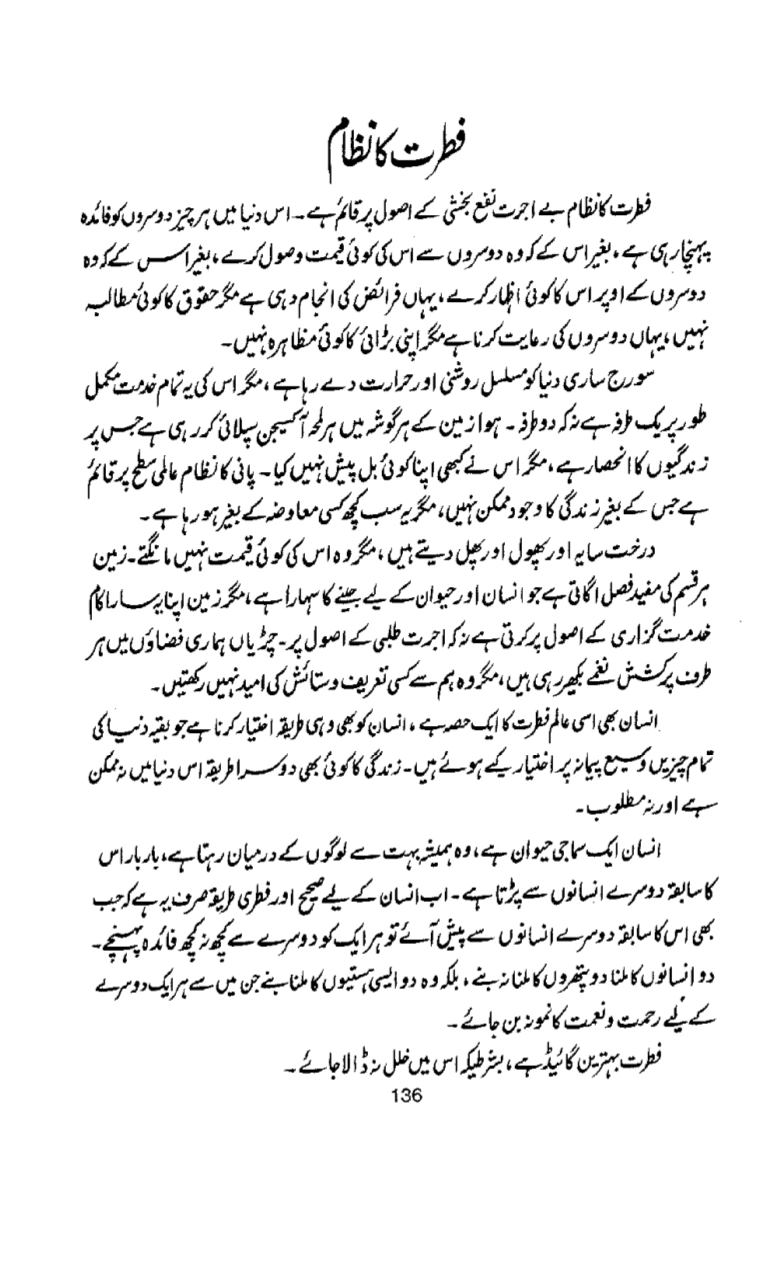 فطرت کا نظام
فطرت کا نظام بے اجرت نفع بخشی کے اصول پر قائم ہے۔ اس دنیا میں ہر چیز دوسروں کو فائدہ
پہنچا رہی ہے، بغیر اس کے کہ وہ دوسروں سے اس کی کوئی قیمت وصول کرے، بغیر اس کے کہ وہ
دوسروں کے اوپر اس کا کوئی اظہار کرے، یہاں فرائض کی انجام دہی ہے مگر حقوق کا کوئی مطالبہ
نہیں، یہاں دوسروں کی رعایت کرنا ہے مگر اپنی بڑائی کا کوئی مظاہرہ نہیں۔
سورج ساری دنیا کو مسلسل روشنی اور حرارت دے رہا ہے، مگر اس کی یہ تمام خدمت مکمل
طور پر یک طرفہ ہے نہ کہ دو طرفہ۔ ہوا زمین کے ہر گوشہ میں ہر لمحہ آکسیجن سپلائی کر رہی ہے جس پر
زندگیوں کا انحصار ہے، مگر اس نے کبھی اپنا کوئی بل پیش نہیں کیا۔ پانی کا نظام عالمی سطح پر قائم
ہے جس کے بغیر زندگی کا وجود ممکن نہیں، مگر یہ سب کچھ کسی معاوضہ کے بغیر ہو رہا ہے۔
درخت سایہ اور پھول اور پھل دیتے ہیں، مگر وہ اس کی کوئی قیمت نہیں مانگتے۔ زمین
ہر قسم کی مفید فصل اگاتی ہے جو انسان اور حیوان کے لیے جینے کا سہارا ہے، مگر زمین اپنا یہ سارا کام
خدمت گزاری کے اصول پر کرتی ہے نہ کہ اجرت طلبی کے اصول پر۔ چڑیاں ہماری فضاؤں میں ہر
طرف پرکشش نغمے بکھیر رہی ہیں، مگر وہ ہم سے کسی تعریف و ستائش کی امید نہیں رکھتیں۔
انسان بھی اسی عالم فطرت کا ایک حصہ ہے، انسان کو بھی وہی طریقہ اختیار کرنا ہے جو بقیہ دنیا کی
تمام چیزیں وسیع پیمانہ پر اختیار کیے ہوئے ہیں۔ زندگی کا کوئی بھی دوسرا طریقہ اس دنیا میں نہ ممکن
ہے اور نہ مطلوب۔
انسان ایک سماجی حیوان ہے، وہ ہمیشہ بہت سے لوگوں کے درمیان رہتا ہے، بار بار اس
کا سابقہ دوسرے انسانوں سے پڑتا ہے۔ اب انسان کے لیے صحیح اور فطری طریقہ صرف یہ ہے کہ جب
بھی اس کا سابقہ دوسرے انسانوں سے پیش آئے تو ہر ایک کو دوسرے سے کچھ نہ کچھ فائدہ پہنچے۔
دو انسانوں کا ملنا دو پتھروں کا ملنا نہ بنے، بلکہ وہ دو ایسی ہستیوں کا ملنا بنے جن میں سے ہر ایک دوسرے
کے لیے رحمت و نعمت کا نمونہ بن جائے۔
فطرت بہترین گائیڈ ہے، بشرطیکہ اس میں خلل نہ ڈالا جائے۔
136